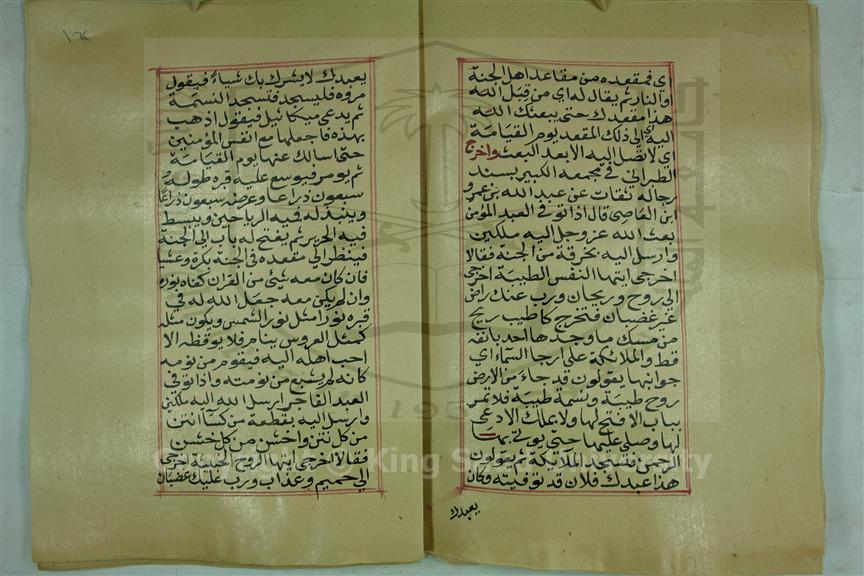 اي فمقعده من مقاعد اهل الجنة
والنار ثم يقال له اي من قبل الله
هذا مقعدك حتى يبعثك الله
اليه اي الى ذلك المقعد يوم القيامة
اي لا تصل اليه الا بعد البعث واخرج
الطبراني في معجمه الكبير بسند
رجاله ثقات عن عبد الله بن عمرو
ابن العاصي قال اذا توفي العبد المؤمن
بعث الله عز وجل اليه ملكين
وارسل اليه بخرقة من الجنة فقالا
اخرجي ايتها النفس الطيبة اخرجي
الى روح وريحان ورب عنك راض
غير غضبان فتخرج كاطيب ريح
من مسك ما وجدها احد بانفه
قط والملائكة على ارجا السماء اي
جوانبها يقولون قد جاء من الارض
روح طيبة ونسمة طيبة فلا تمر
بباب الا فتح لها ولا بملك الا دعى
لها وصلى عليها حتى يوتى بها
الرحمن فتسجد الملائكة ثم يقولون
هذا عبدك فلان قد توفيته وكان
يعبدك
يعبدك لا يشرك بك شياء فيقول
مروه فليسجد فتسجد النسمة
ثم يدعى ميكائيل فيقول اذهب
بهذه فاجعلها مع انفس المؤمنين
حتى اسالك عنها يوم القيامة
ثم يومر فيوسع عليه قبره طوله
سبعون ذراعا وعرضه سبعون ذراعا
وينبذ له فيه الرياحين ويبسط
فيه الحرير ثم يفتح له باب الى الجنة
فينظر الى مقعده في الجنة بكرة وعشيا
فان كان معه شئ من القران كفاه نوره
وان لم يكن معه جعل الله له في
قبره نورا مثل نور الشمس ويكون مثله
كمثل العروس ينام فلا يوقظه الا
احب اهله اليه فيقوم من نومه
كانه لم يشبع من نومته واذا توفي
العبد الفاجر ارسل الله اليه ملكين
وارسل اليه بقطعة من كساء انتن
من كل نتن واخشن من كل خشن
فقالا اخرجي ايتها الروح الخبيثة اخرجي
الى حميم وعذاب ورب عليك غضبان
King S
rsity
195